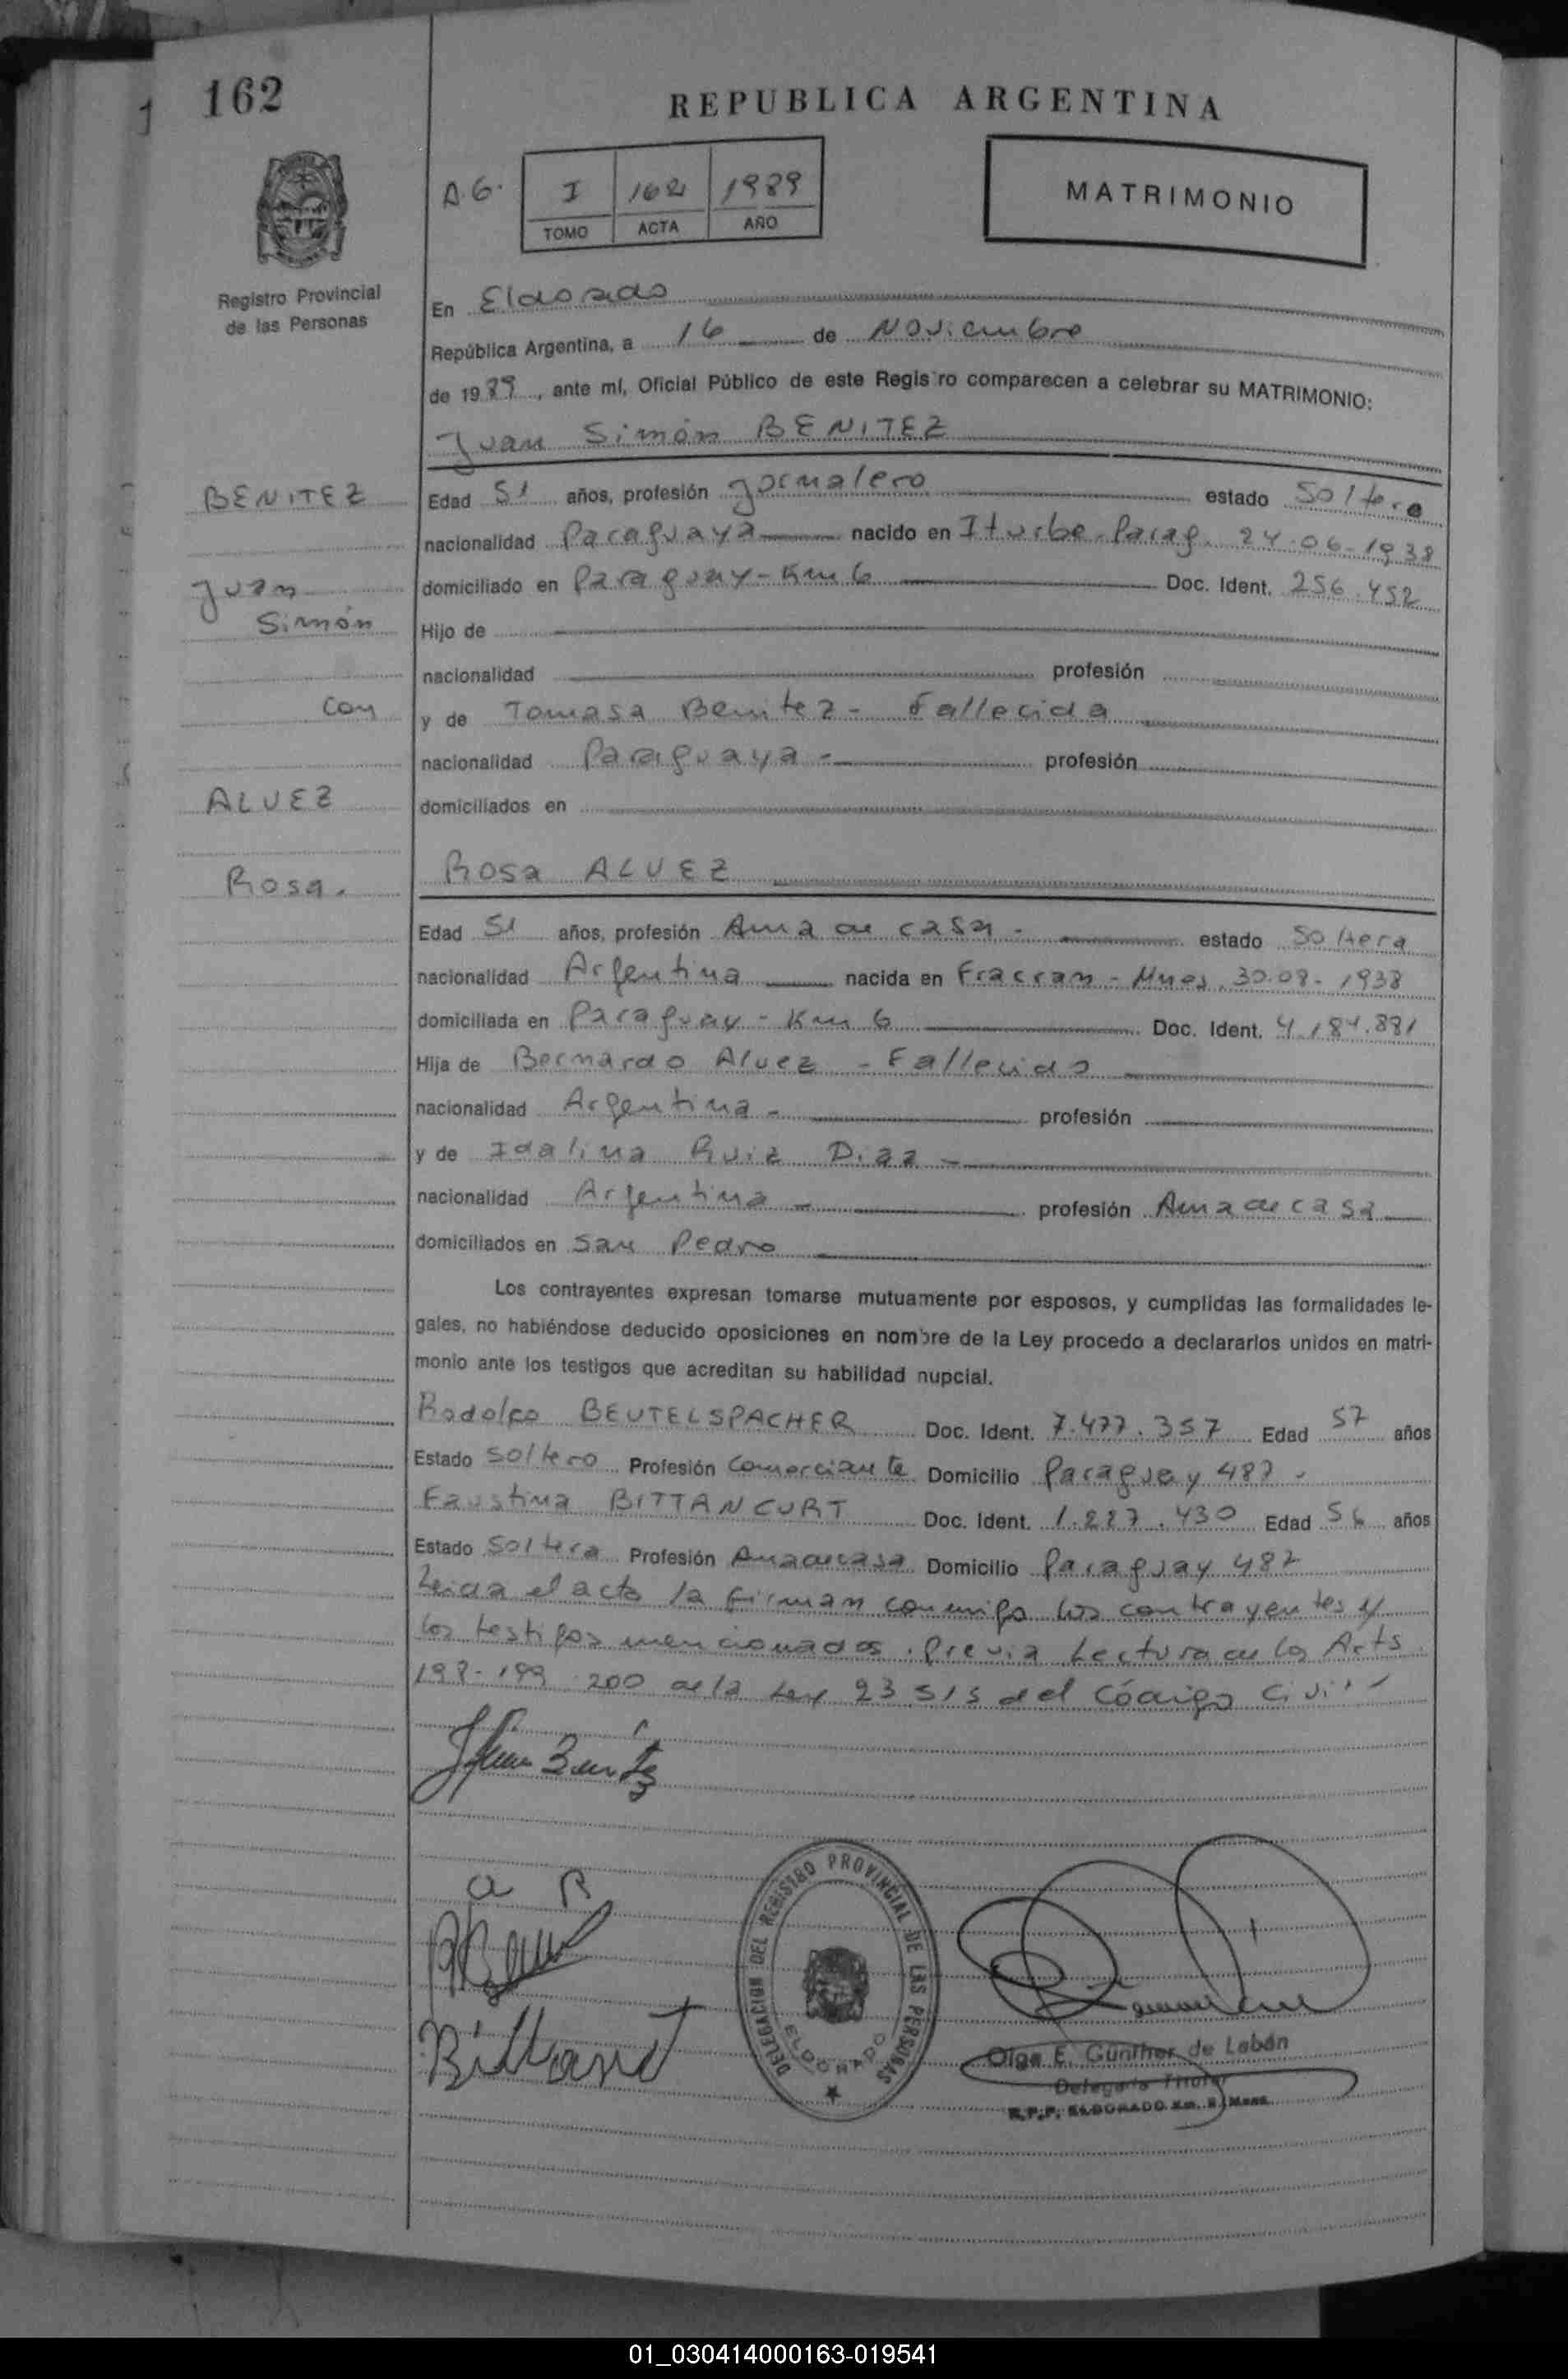 162
REPUBLICA ARGENTINA
A.G. I 162 1989
TOMO ACTA AÑO
MATRIMONIO
Registro Provincial
de las Personas
En Eldorado
República Argentina, a 16 de Noviembre
de 1989, ante mí, Oficial Público de este Registro comparecen a celebrar su MATRIMONIO:
Juan Simón BENITEZ
BENITEZ
Juan
Simón
con
ALVEZ
Rosa.
Edad 51 años, profesión Jornalero estado Soltero
nacionalidad Paraguaya nacido en Iturbe - Parag. 24-06-1938
domiciliado en Paraguay - Km 6 Doc. Ident. 256.452
Hijo de
nacionalidad profesión
y de Tomasa Benitez - Fallecida
nacionalidad Paraguaya - profesión
domiciliados en
Rosa ALVEZ
Edad 51 años, profesión Ama de casa - estado Soltera
nacionalidad Argentina nacida en Fracran - Mnes. 30-08-1938
domiciliada en Paraguay - Km 6 Doc. Ident. 4.184.881
Hija de Bernardo Alvez - Fallecido
nacionalidad Argentina - profesión
y de Idalina Ruiz Diaz -
nacionalidad Argentina - profesión Ama de casa
domiciliados en San Pedro
Los contrayentes expresan tomarse mutuamente por esposos, y cumplidas las formalidades le-
gales, no habiéndose deducido oposiciones en nombre de la Ley procedo a declararlos unidos en matri-
monio ante los testigos que acreditan su habilidad nupcial.
Rodolfo BEUTELSPACHER Doc. Ident. 7.477.357 Edad 57 años
Estado Soltero Profesión Comerciante Domicilio Paraguay 487 -
Faustina BITTANCURT Doc. Ident. 1.227.430 Edad 56 años
Estado Soltera Profesión Ama de casa Domicilio Paraguay 487
Leida el acta la firman conmigo los contrayentes y
los testigos mencionados. Previa Lectura de los Arts
198-199-200 de la Ley 23515 del Código Civil
Benitez
a R
DELEGACION DEL REGISTRO PROVINCIAL DE LAS PERSONAS
ELDORADO
Olga E. Günther de Lobán
Delegada Titular
R.P.P. ELDORADO Km. 9 Mnes.
01_030414000163-019541